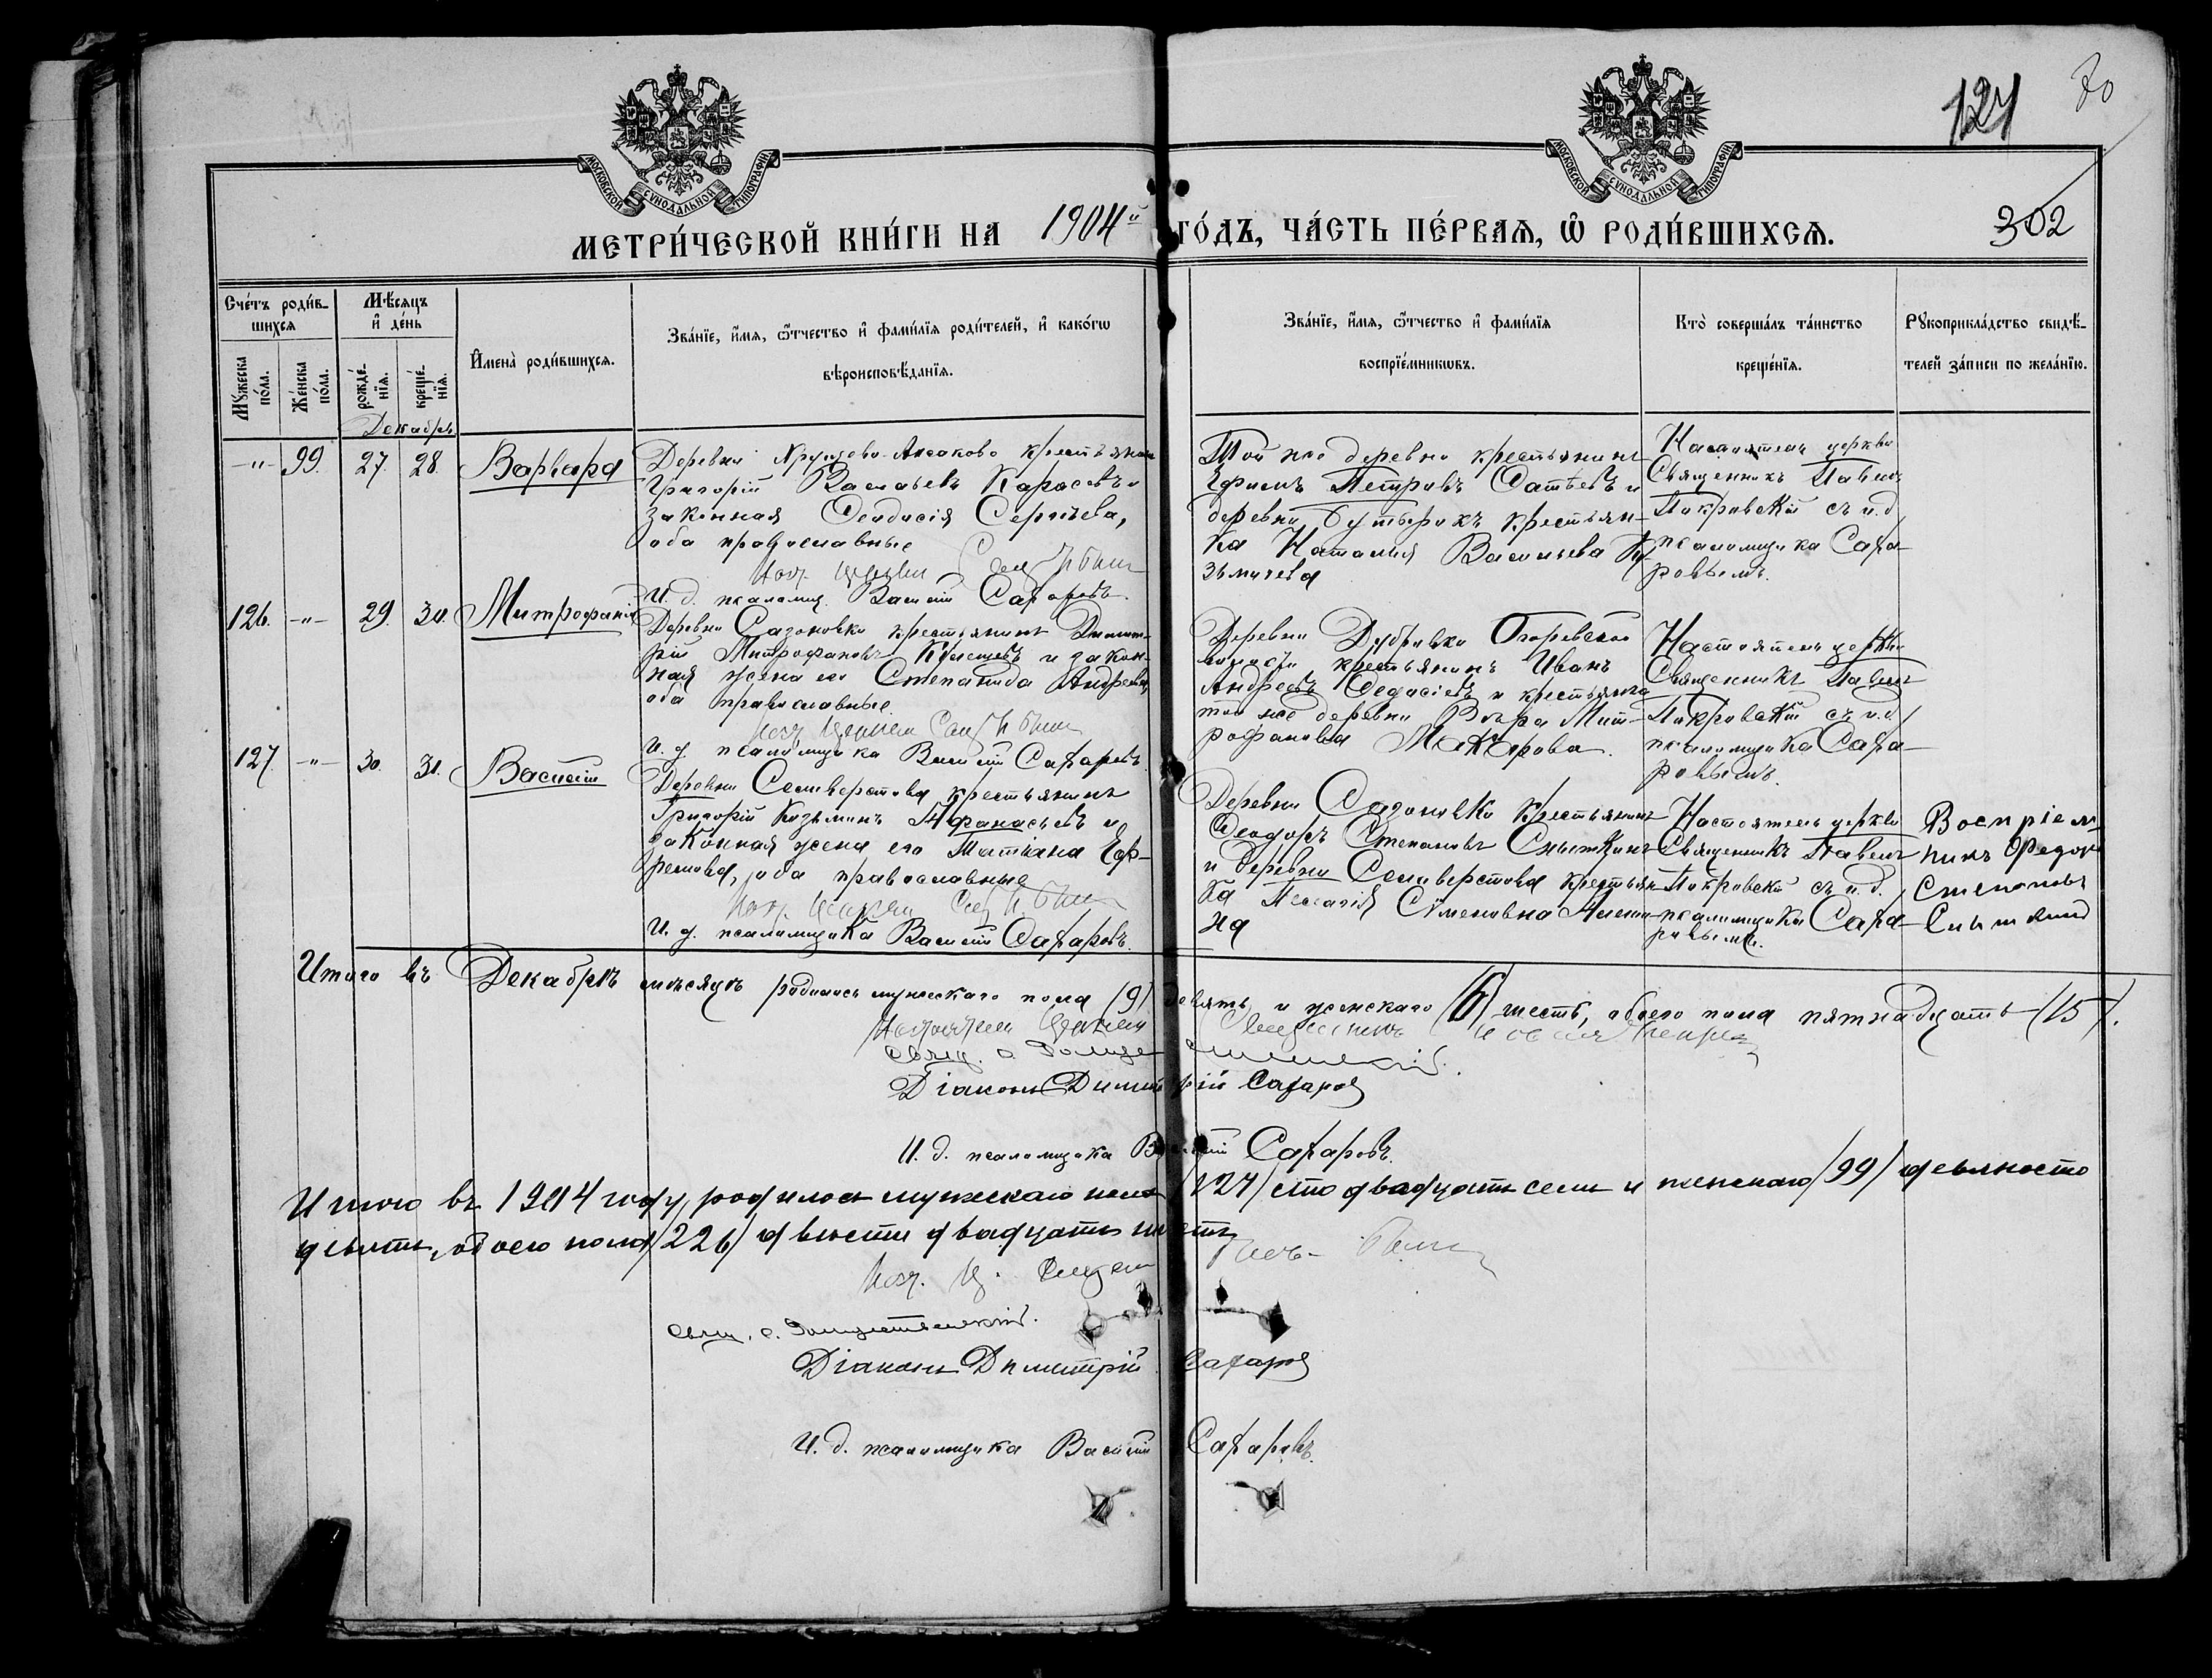 124
70
МОСКОВСКОЙ СѴНОДАЛЬНОЙ ТИПОГРАФІИ
МОСКОВСКОЙ СѴНОДАЛЬНОЙ ТИПОГРАФІИ
МЕТРИ́ЧЕСКОЙ КНИ́ГИ НА 1904й ГО́ДЪ, ЧА́СТЬ ПЕ́РВАѦ, Ѡ РОДИ́ВШИХСѦ.
302
Сче́тъ роди́вшихся
Му́жеска по́ла.
Же́нска по́ла.
Мѣ́сяцъ и де́нь
рожде́нїя.
креще́нїя.
Имена̀ роди́вшихся.
Зва́нїе, и́мя, ѻ́тчество и фами́лїя роди́телей, и како́гѡ
вѣроисповѣ́данїя.
Зва́нїе, и́мя, ѻ́тчество и фами́лїя
воспрїе́мникѡвъ.
Кто̀ соверша́лъ та́инство
креще́нїя.
Рꙋкоприкла́дство свидѣ́телей за́писи по жела́нїю.
Декабрь
-"- 99. 27. 28. Варвара
Деревни Аксаково крестьянинъ
Григорій Васильевъ Карасевъ и
законная Ѳеодосія Сергѣева,
оба православные
И. д. псаломщ. Василій Сафаровъ.
Той же деревни крестьянинъ
Ефимъ Петровъ и
деревни Бутырокъ крестьян-
ка Наталья Васильева Ку-
зьмичева
Настоятель церкви
Священникъ Павелъ
Покровскій съ и. д.
псаломщика Сафа-
ровымъ.
126. -"- 29. 30. Митрофанъ
Деревни Сазоновки крестьянинъ Димит-
рій Митрофановъ и закон-
ная жена его Степанида Андреева
оба православные.
И. д. псаломщика Василій Сафаровъ.
Деревни Дубровки
волости крестьянинъ Иванъ
Андреевъ Ѳедосіевъ и крестьянка
той же деревни Вѣра Мит-
рофановна Макарова.
Настоятель церкви
Священникъ Павелъ
Покровскій съ и. д.
псаломщика Сафа-
ровымъ.
127. -"- 30. 31. Василій
Деревни Селиверстова крестьянинъ
Григорій Козьминъ Афанасьевъ и
законная жена его Татьяна Еф-
ремова, оба православные
И. д. псаломщика Василій Сафаровъ.
Деревни Сазоновки крестьянинъ
Ѳеодоръ Степановъ Сныткинъ
и деревни Селиверстова крестьян-
ка Пелагія Семеновна
на
Настоятель церкви
Священникъ Павелъ
Покровскій съ и. д.
псаломщика Сафа-
ровымъ.
Воспріем-
никъ Ѳедоръ
Степановъ
Сныткинъ
Итого въ Декабрѣ мѣсяцѣ родилось мужескаго пола (9) девять и женскаго (6) шесть, обоего пола пятнадцать (15).
Діаконъ Димитрій Сафаровъ
И. д. псаломщика Василій Сафаровъ.
Итого въ 1904 году, родилось мужескаго пола /127/ сто двадцать семь и женскаго /99/ девяносто
девять, обоего пола /226/ двѣсти двадцать шесть
Діаконъ Димитрій Сафаровъ
И. д. псаломщика Василій Сафаровъ.